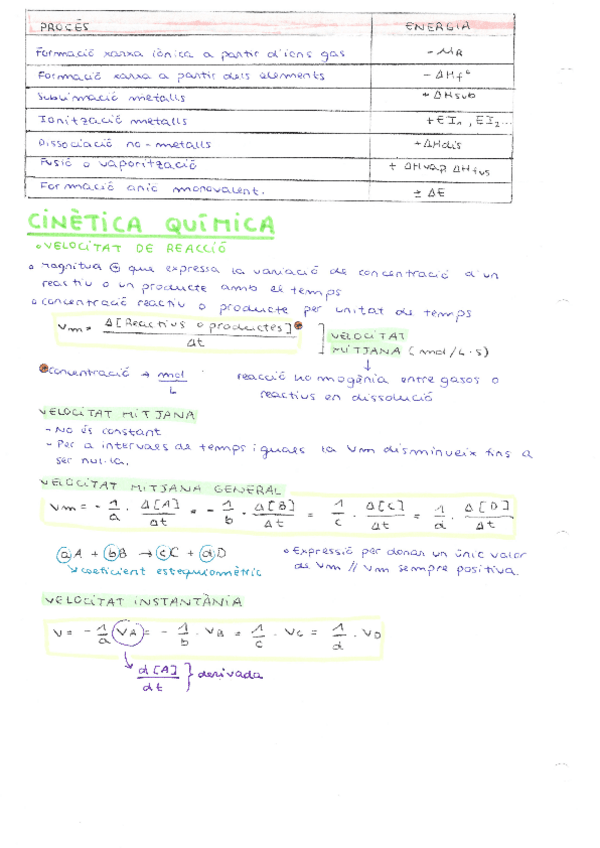 PROCÉS ENERGIA
Formació xarxa iònica a partir d'ions gas - MR
Formació xarxa a partir dels elements - ΔHfº
Sublimació metalls + ΔHsub
Ionització metalls + EI1, EI2...
Dissociació no-metalls + ΔHdis
Fusió o vaporització + ΔHvap, ΔHfus
Formació anió monovalent. ± ΔE
CINÈTICA QUÍMICA
VELOCITAT DE REACCIÓ
Magnitud ⊕ que expressa la variació de concentració d'un
reactiu o un producte amb el temps
concentració reactiu o producte per unitat de temps
Vm = Δ[Reactius o productes] / Δt
VELOCITAT
MITJANA (mol/L·s)
concentració → mol / L
reacció homogènia entre gasos o
reactius en dissolució
VELOCITAT MITJANA
- No és constant
- Per a intervals de temps iguals la Vm disminueix fins a
ser nul·la.
VELOCITAT MITJANA GENERAL
Vm = - 1/a · Δ[A]/Δt = - 1/b · Δ[B]/Δt = 1/c · Δ[C]/Δt = 1/d · Δ[D]/Δt
aA + bB → cC + dD
coeficient estequiomètric
Expressió per donar un únic valor
de Vm // Vm sempre positiva.
VELOCITAT INSTANTÀNIA
V = - 1/a VA = - 1/b · VB = 1/c · VC = 1/d · VD
d[A] / dt } derivada